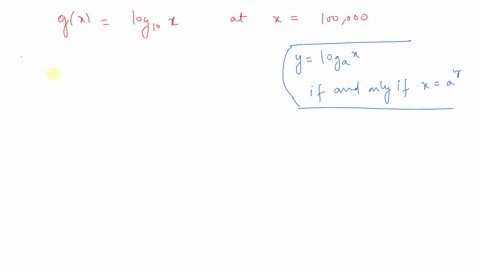 g(x) = log₁₀ x at x = 100,000
y = logₐ x
if and only if x = aʸ